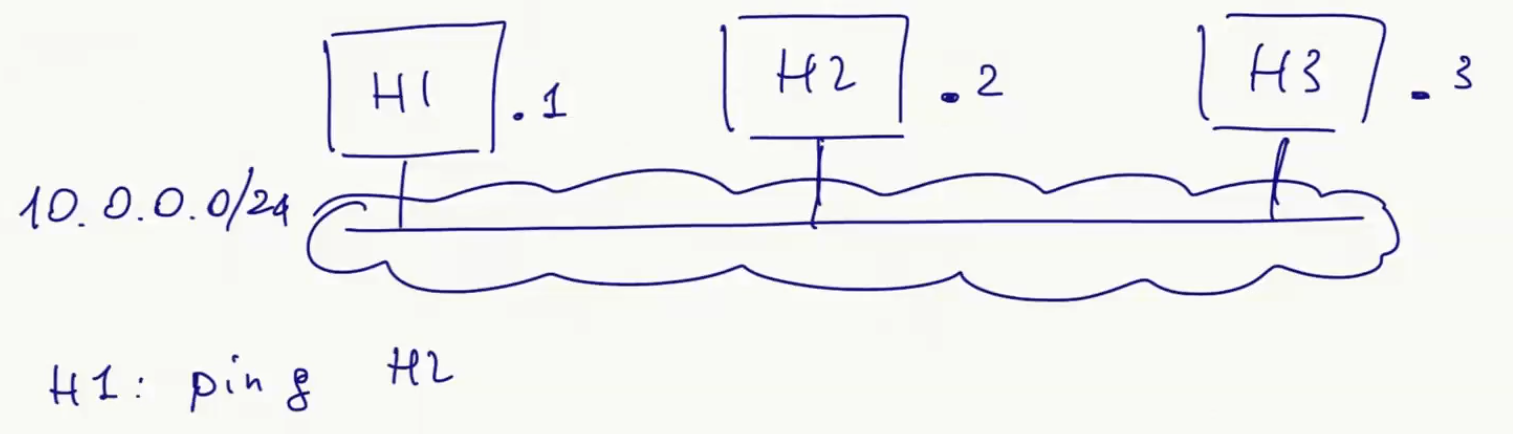 H1 .1 H2 .2 H3 .3
10.0.0.0/24
H1: ping H2